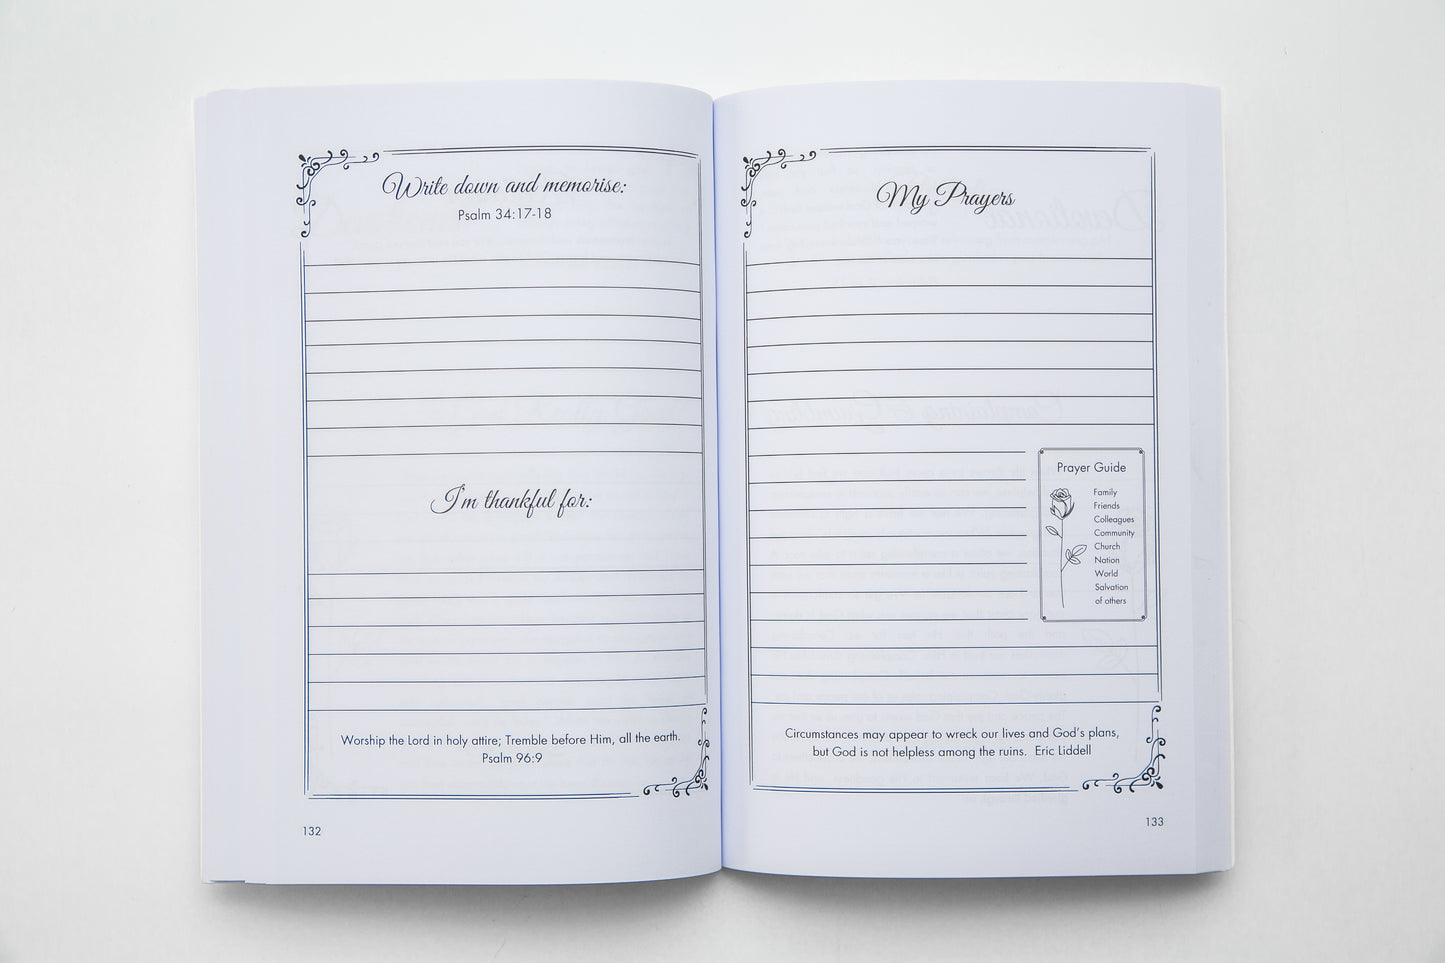 Write down and memorise:
Psalm 34:17-18
I'm thankful for:
Worship the Lord in holy attire; Tremble before Him, all the earth.
Psalm 96:9
132
My Prayers
Prayer Guide
Family
Friends
Colleagues
Community
Church
Nation
World
Salvation
of others
Circumstances may appear to wreck our lives and God's plans,
but God is not helpless among the ruins.  Eric Liddell
133